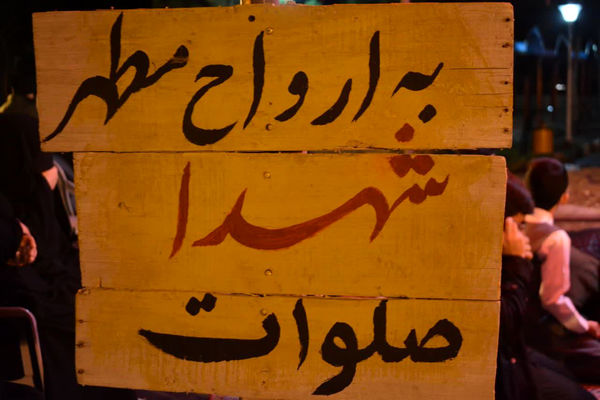 به ارواح مطهر
شهدا
صلوات